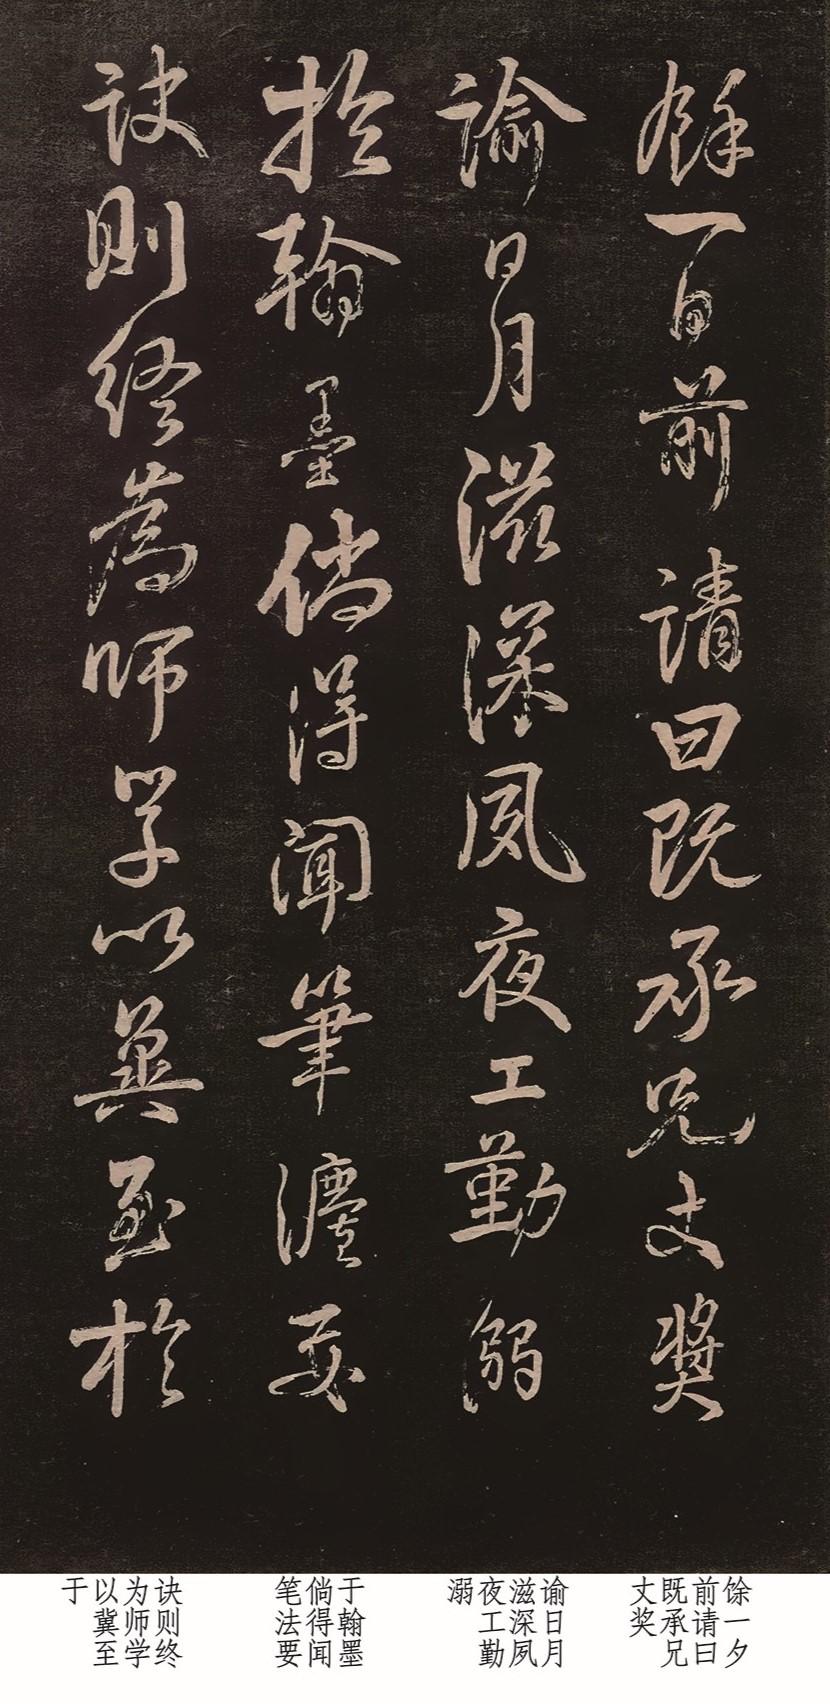 餘一日前請曰既承兄丈奬
諭日月滋深夙夜工勤溺
於翰墨倘得聞筆灋要
訣則終為師學以冀至於
馀一夕
前请曰
既承兄
丈奖
谕日月
滋深夙
夜工勤
溺
于翰墨
倘得闻
笔法要
诀则终
为师学
以冀至
于